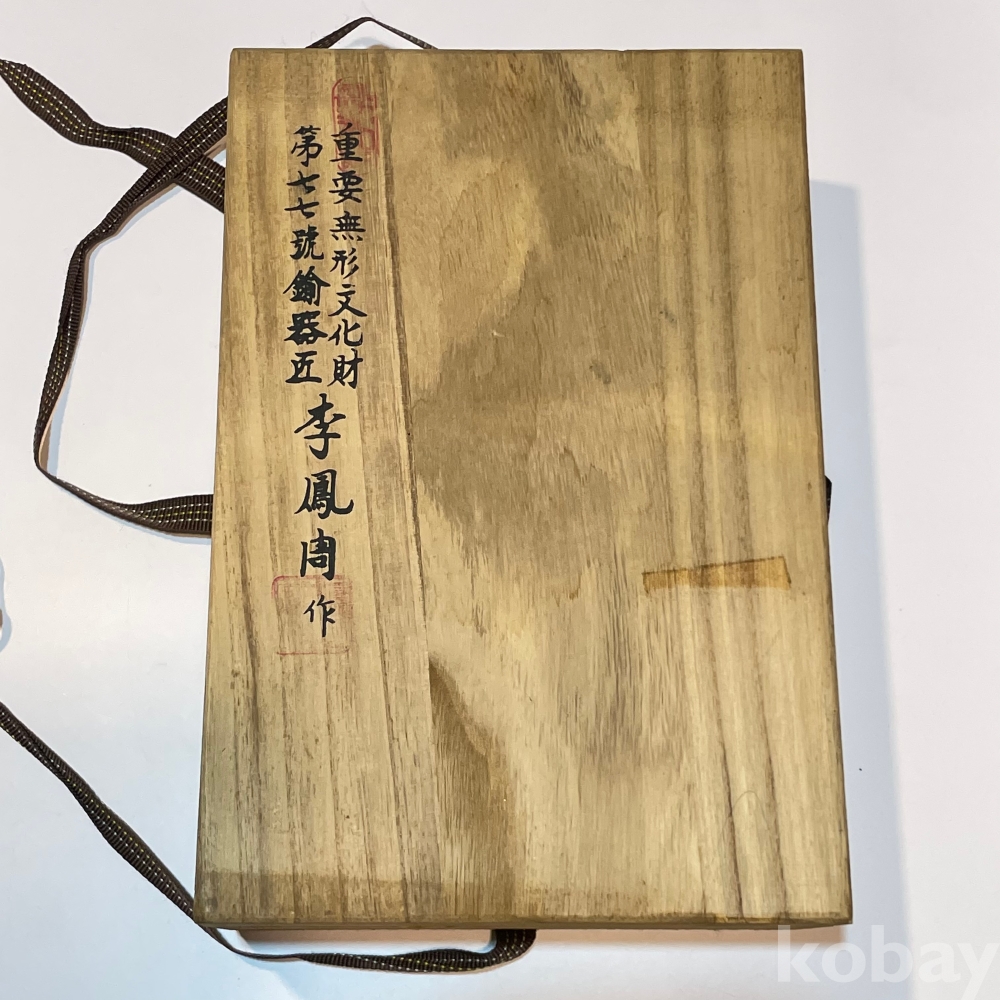 重要無形文化財
第七七號鍮器匠
李鳳周作
kobay